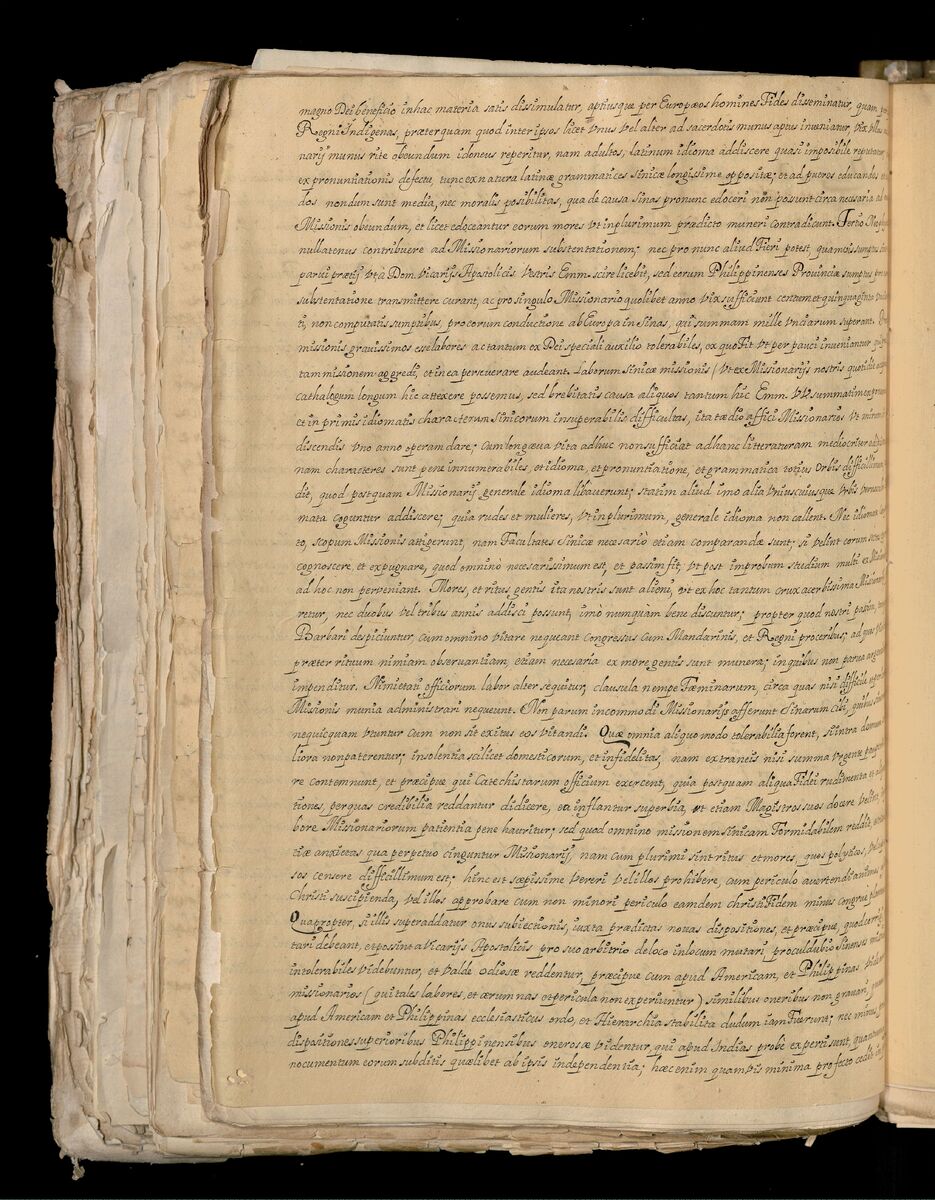 magno Dei beneficio in hac materia satis dissimulatur, aptiusque per Europæos homines Fides disseminatur, quam
Regni Indigenas, præterquam quod inter ipsos licet vnus vel alter ad sacerdotis munus aptus inveniatur, vix
narij munus rite obeundum idoneus reperitur, nam adultos, latinum idioma addiscere quasi imposibile reputatur
ex pronuntiationis defectu, tunc ex natura latinæ grammatices sinicæ longissime oppositæ; et ad pueros educandos
dos nondum sunt media, nec moralis posibilitas, qua de causa sinas pro nunc edoceri non possunt circa necesaria ad
Missionis obeundum, et licet edoceantur eorum mores vt in plurimum prædicto muneri contradicunt. Tertio
nullatenus contribuere ad Missionariorum substentationem; nec pro nunc aliud Fieri potest, quamvis sumptus
parui prætij vt à Dom. Vicarijs Apostolicis Vestris Emm. scire licebit, sed eorum Philippinenses Provinciæ sumptus
substentatione transmittere curant, ac pro singulo Missionario quolibet anno vix sufficiunt centum et quinquaginta
ti, non computatis sumptibus, pro eorum conductione ab Europa in Sinas, qui summam mille vnciarum superant.
missionis gravissimos esse labores ac tantum ex Dei speciali auxilio tolerabiles, ex quo Fit vt per pauci inveniantur
tam missionem aggredi, et in ea perseverare audeant. Laborum sinicæ missionis (vt ex Missionarijs nostris quotidie
cathalogum longum hic attexere possemus, sed brebitatis causa aliquos tantum hic Emm. VV. summatim
et in primis idiomatis characterum Sinicorum insuperabilis difficultas, ita tædio affici Missionarios vt
discendis vno anno operam dare; cum longæva vita adhuc non sufficiat ad hanc litteraturam mediocriter
nam characteres sunt pene innumerabiles, et idioma, et pronuntiatione, et grammatica totius Orbis
dit, quod postquam Missionarij generale idioma libaverunt; statim aliud imo alia vniuscuiusque Vrbis
mata coguntur addiscere; quia rudes et mulieres, vt in plurimum, generale idioma non callent. Nec idiomate
eo, scopum Missionis attigerunt, nam Facultates Sinicæ necesario etiam comparandæ sunt; si velint eorum
cognoscere et expugnare, quod omnino necesarissimum est, et passim fit, vt post improbum studium multi ex
ad hoc non perveniant. Mores, et ritus gentis ita nostris sunt alieni, vt ex hoc tantum crux acerbissima
retur, nec duobus vel tribus annis addisci possunt, imo numquam bene discuntur; propter quod nostri
Barbari despiciuntur, cum omnino vitare nequeant congressus cum Mandarinis, et Regni proceribus; ad quos
præter rituum nimiam observantiam, etiam necesaria ex more gentis sunt munera; in quibus non parua
impenditur. Nimietati officiorum labor alter sequitur, clausula nempe Fæminarum, circa quas nisi difficile
Missionis munia administrari nequeunt. Non parum incommodi Missionarijs afferunt Sinarum cibi, quibus
nequicquam vtuntur cum non sit exitus eos vitandi. Quæ omnia aliquo modo tolerabilia forent, si intra
liora non paterentur; insolentia scilicet domesticorum, et infidelitas, nam extraneis nisi summa vrgente
re contemnunt, et præcipue qui Catechistarum officium exercent, quia postquam aliqua Fidei rudimenta
tiones, per quas credibilia reddantur didicere, ea inflantur superbia, vt etiam Magistros suos docere
bore Missionariorum patientia pene hauritur; sed quod omnino missionem sinicam Formidabilem reddit,
tiæ anxietas qua perpetuo cinguntur Missionarij, nam cum plurimi sint ritus et mores, quos polyticos,
sos censere difficillimum est; hinc est sæpissime vereri vel illos prohibere, cum periculo avertendi
Christi suscipienda, vel illos approbare cum non minori periculo eamdem Christi Fidem minus congrue
Quapropter, si illis superaddatur onus subiectionis, iuxta prædictas novas dispositiones, et præcipue, quod
tari debeant, et possint a Vicarijs Apostolicis pro suo arbitrio de loco in locum mutari, proculdubio Sinenses
intolerabiles videbuntur, et valde odiosæ reddentur, præcipue cum apud Americam, et Philippinas
missionarios (qui tales labores, et ærumnas et pericula non experiuntur) similibus oneribus non gravari,
apud Americam et Philippinas ecclesiasticus ordo, et Hierarchia stabilita dudum iam Fuerunt; nec minus
dispositiones superioribus Philippinensibus onerosæ videntur, qui apud Indias probe experti sunt,
nocumentum eorum subditis quælibet ab ipsis independentia; hæc enim quamvis minima profecto